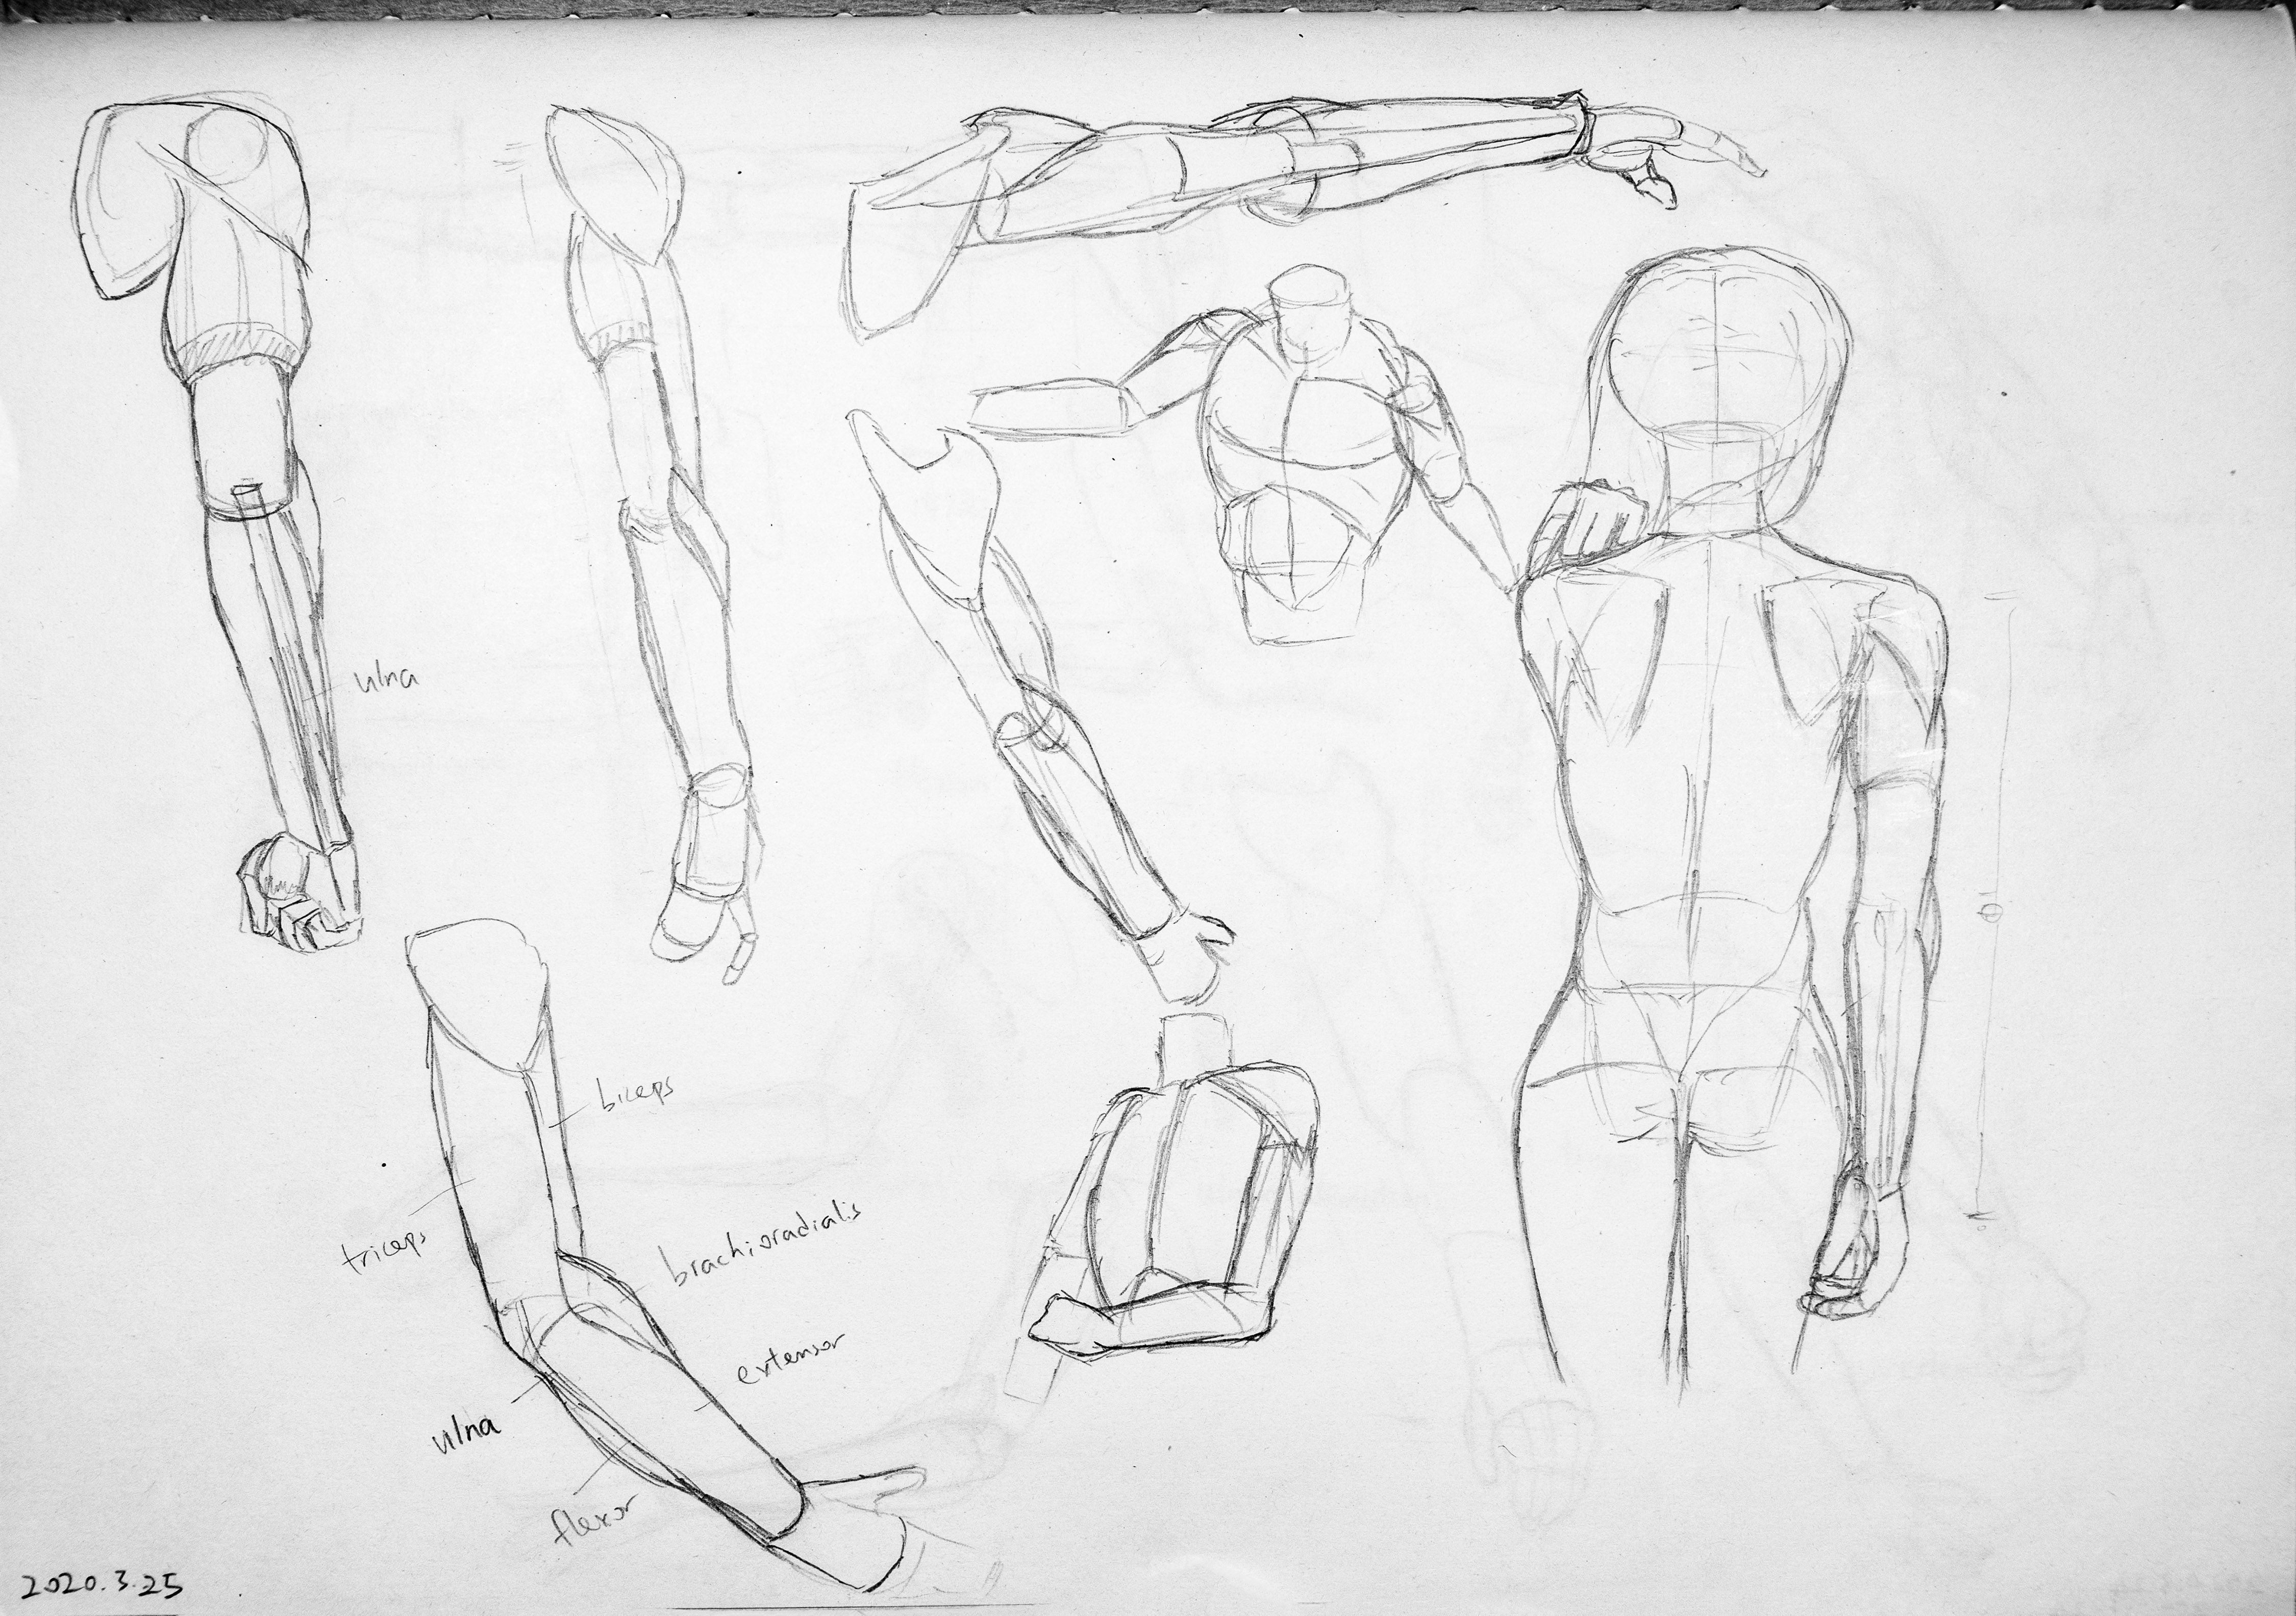 ulna
biceps
triceps
brachioradialis
extensor
ulna
flexor
2020.3.25